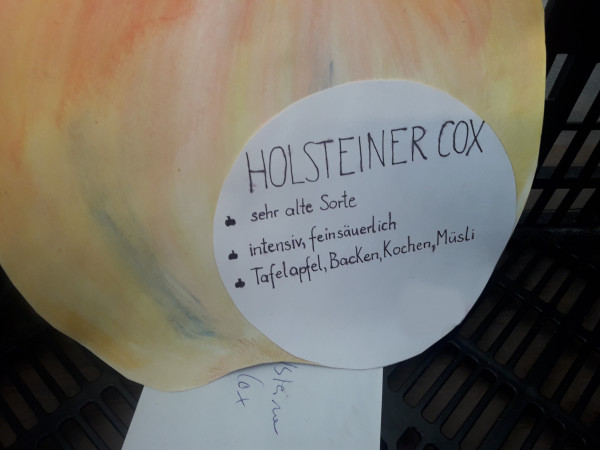 HOLSTEINER COX
sehr alte Sorte
intensiv, feinsäuerlich
Tafelapfel, Backen, Kochen, Müsli
Cox